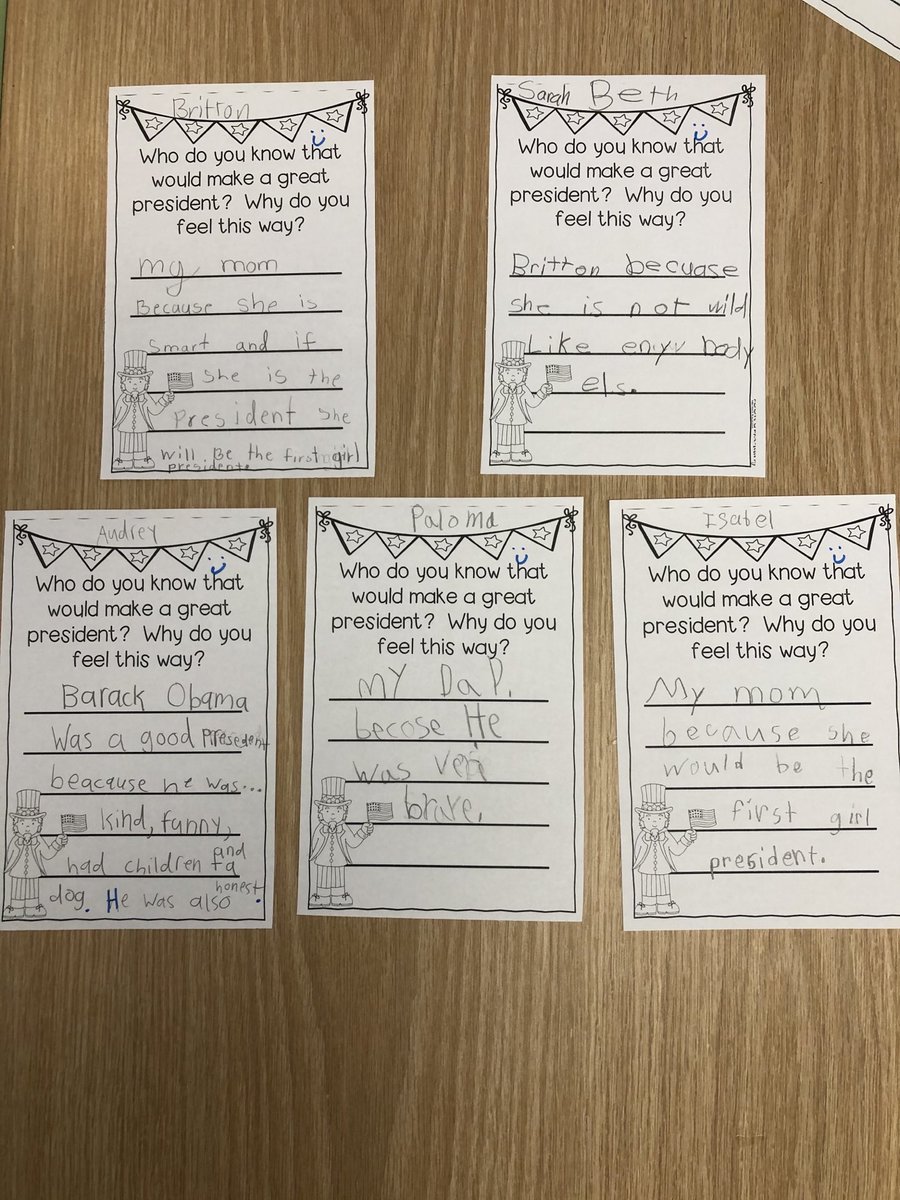 Britton
Who do you know that
would make a great
president? Why do you
feel this way?
my mom
Because she is
smart and if
she is the
President she
will. Be the first girl
presidente
Sarah Beth
Who do you know that
would make a great
president? Why do you
feel this way?
Britton becuase
she is not wild
Like enyv body
els.
Audrey
Who do you know that
would make a great
president? Why do you
feel this way?
Barack Obama
Was a good Presedent
beacause he was...
kind, funny,
had children and a
dog. He was also honest.
Paloma
Who do you know that
would make a great
president? Why do you
feel this way?
MY DaD.
becose He
was veri
brive.
Isabel
Who do you know that
would make a great
president? Why do you
feel this way?
My mom
because she
would be the
first girl
president.